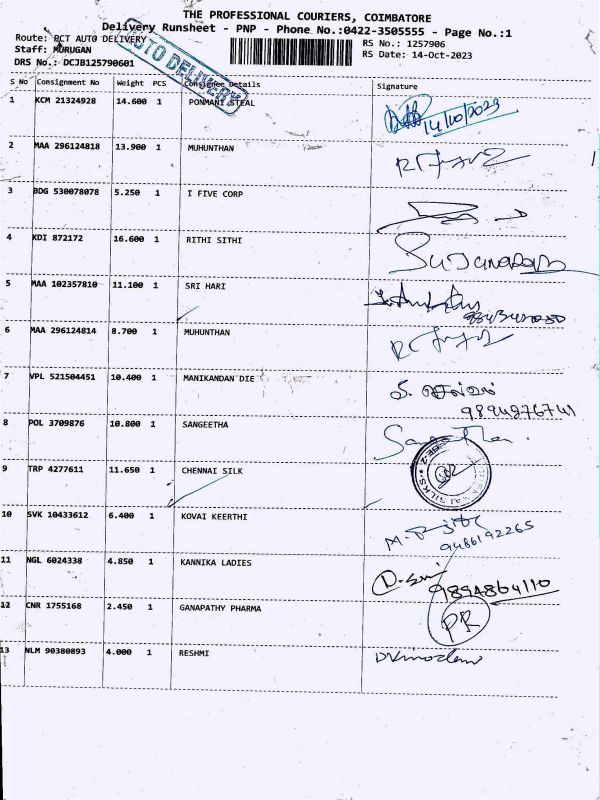 THE PROFESSIONAL COURIERS, COIMBATORE
Delivery Runsheet - PNP - Phone No.:0422-3505555 - Page No.:1
Route: PCT AUTO DELIVERY
RS No.: 1257906
Staff: MURUGAN
RS Date: 14-Oct-2023
DRS No.: DCJB125790601
AUTO DELIVERY
S No Consignment No Weight PCS Consignee Details Signature
1 KCM 21324928 14.600 1 PONMANI STEAL
14/10/2023
2 MAA 296124818 13.900 1 MUHUNTHAN
3 BDG 530078078 5.250 1 I FIVE CORP
4 KDI 872172 16.600 1 RITHI SITHI
5 MAA 102357810 11.100 1 SRI HARI
6 MAA 296124814 8.700 1 MUHUNTHAN
7 VPL 521504451 10.400 1 MANIKANDAN DIE
9894276741
8 POL 3709876 10.800 1 SANGEETHA
9 TRP 4277611 11.650 1 CHENNAI SILK
10 SVK 10433612 6.400 1 KOVAI KEERTHI
9486192265
11 NGL 6024338 4.850 1 KANNIKA LADIES
9894864110
12 CNR 1755168 2.450 1 GANAPATHY PHARMA
PR
13 NLM 90380893 4.000 1 RESHMI